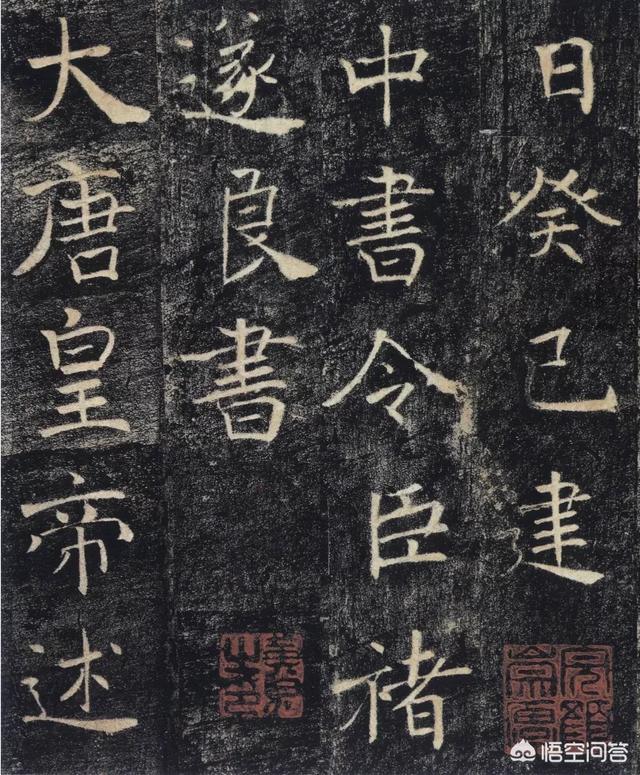 日癸巳建
中書令臣褚
遂良書
大唐皇帝述
悟空问答